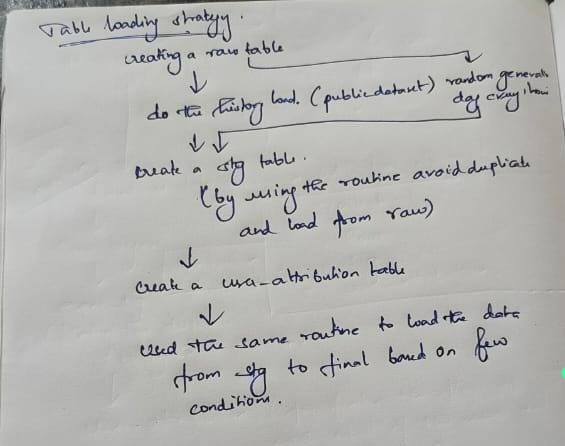 Table loading strategy.
creating a raw table
do the history load. (public dataset) random generate
dag every 1 hour
create a stg table.
(by using the routine avoid duplicate
and load from raw)
create a cura-attribution table
used the same routine to load the data
from stg to final based on few
conditions.